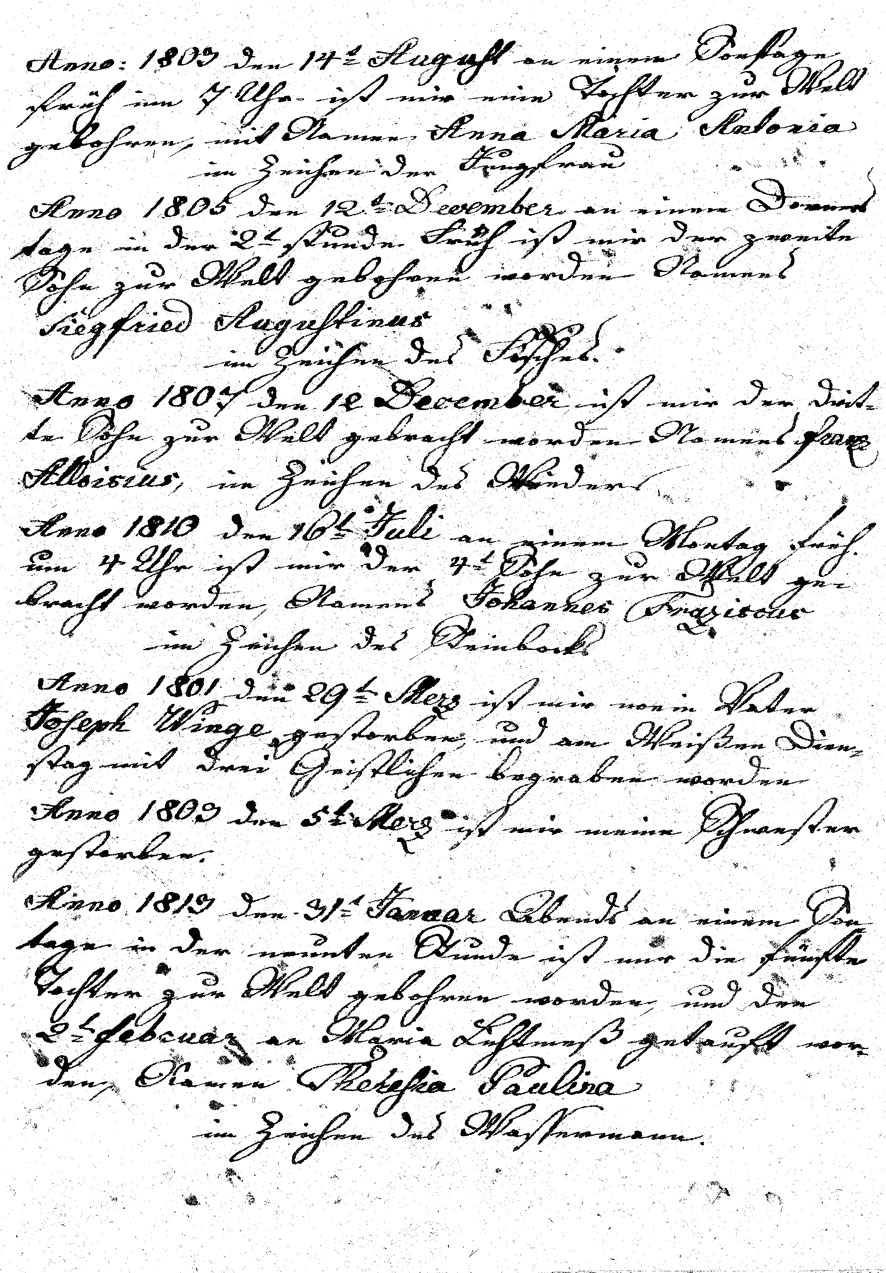 Anno: 1803 den 14t August an einem Sonntage
früh um 7 Uhr ist mir eine Tochter zur Welt
gebohren, mit Namen Anna Maria Antonia
im Zeichen der Jungfrau
Anno 1805 den 12t December an einem Donners
tage in der 2t stunde Früh ist mir der zweite
Sohn zur Welt gebohren worden Namens
Siegfried Augustinus
im Zeichen des Fisches.
Anno 1807 den 12 December ist mir der drit-
te Sohn zur Welt gebracht worden Namens Franz
Alloisius, im Zeichen des Wieders
Anno 1810 den 16t Juli an einem Montag früh
um 4 Uhr ist mir der 4t Sohn zur Welt ge-
bracht worden, Namens Johannes Fraziscus
im Zeichen des Steinbocks
Anno 1801 den 29t Merz ist mir mein Vater
Joseph Winge gestorben, und am Weißen Dien-
stag mit drei Geistlichen begraben worden
Anno 1803 den 5t Merz ist mir meine Schwester
gestorben.
Anno 1813 den 31t Januar Abends an einem Son
tage in der neunten Stunde ist mir die fünfte
Tochter zur Welt gebohren worden, und den
2t Februar an Maria Lichtmeß getauft wor-
den, Namen Theresia Paulina
im Zeichen des Wassermann.